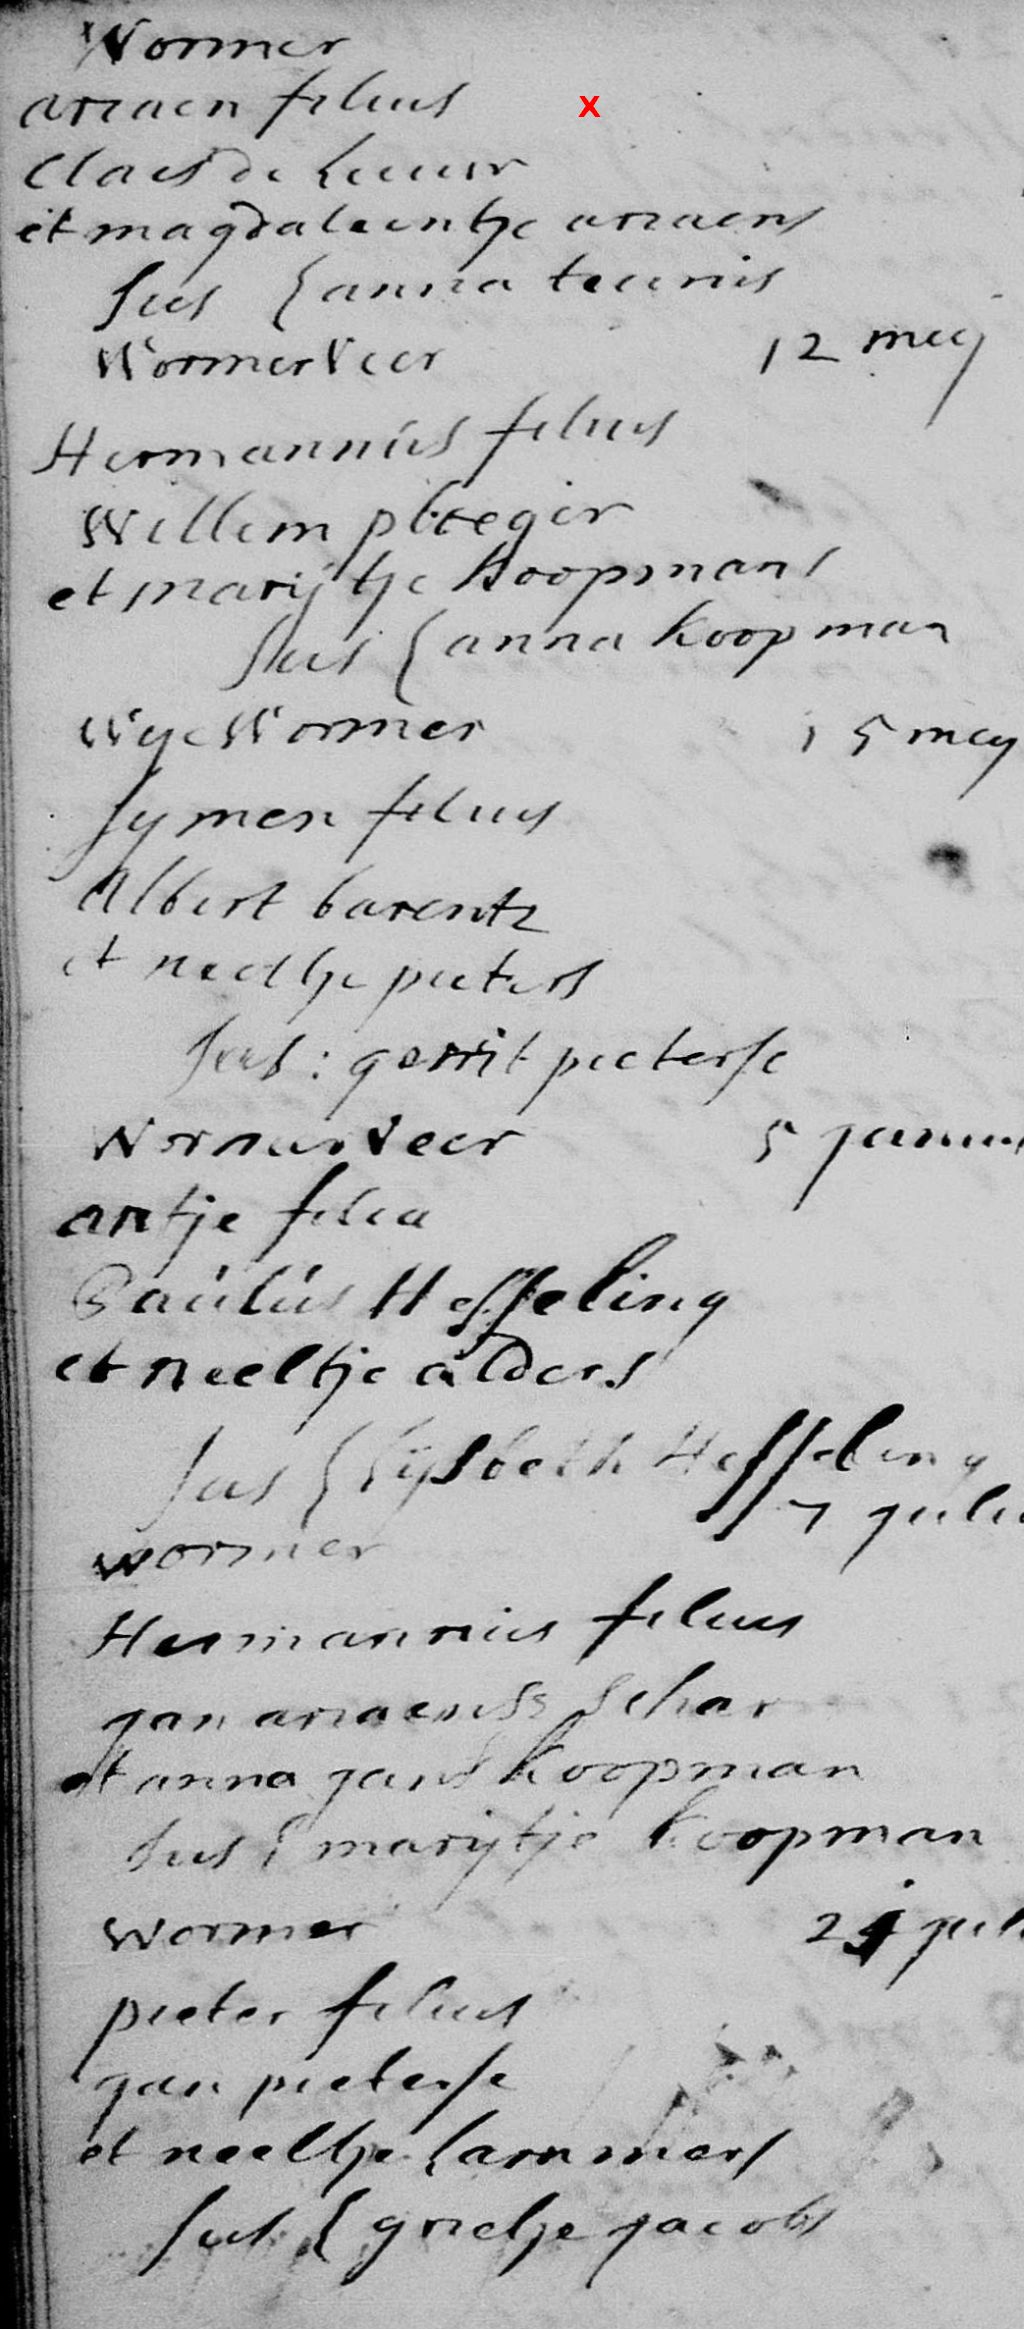 Wormer
ariaen filius x
Claes de Leeuw
et magdaleentje ariaens
sus { anna teunis
WormerVeer 12 mey
Hermannús filius
Willem ploeger
et marijtje koopmans
sus { anna koopman
Wyewormer 15 mey
symen filius
Albert barentz
et neeltje pieters
sus : gerrit pieterse
WormerVeer 5 junii
antje filia
Paúlús Hesseling
et neeltje alders
sus { lijsbeth Hesseling
wormer 7 juli
Hermannius filius
jan ariaenss schar
et anna jans koopman
sus { marijtje koopman
wormer 24 juli
pieter filius
jan pieterse
et neeltje lammers
sus { grietje jacobs